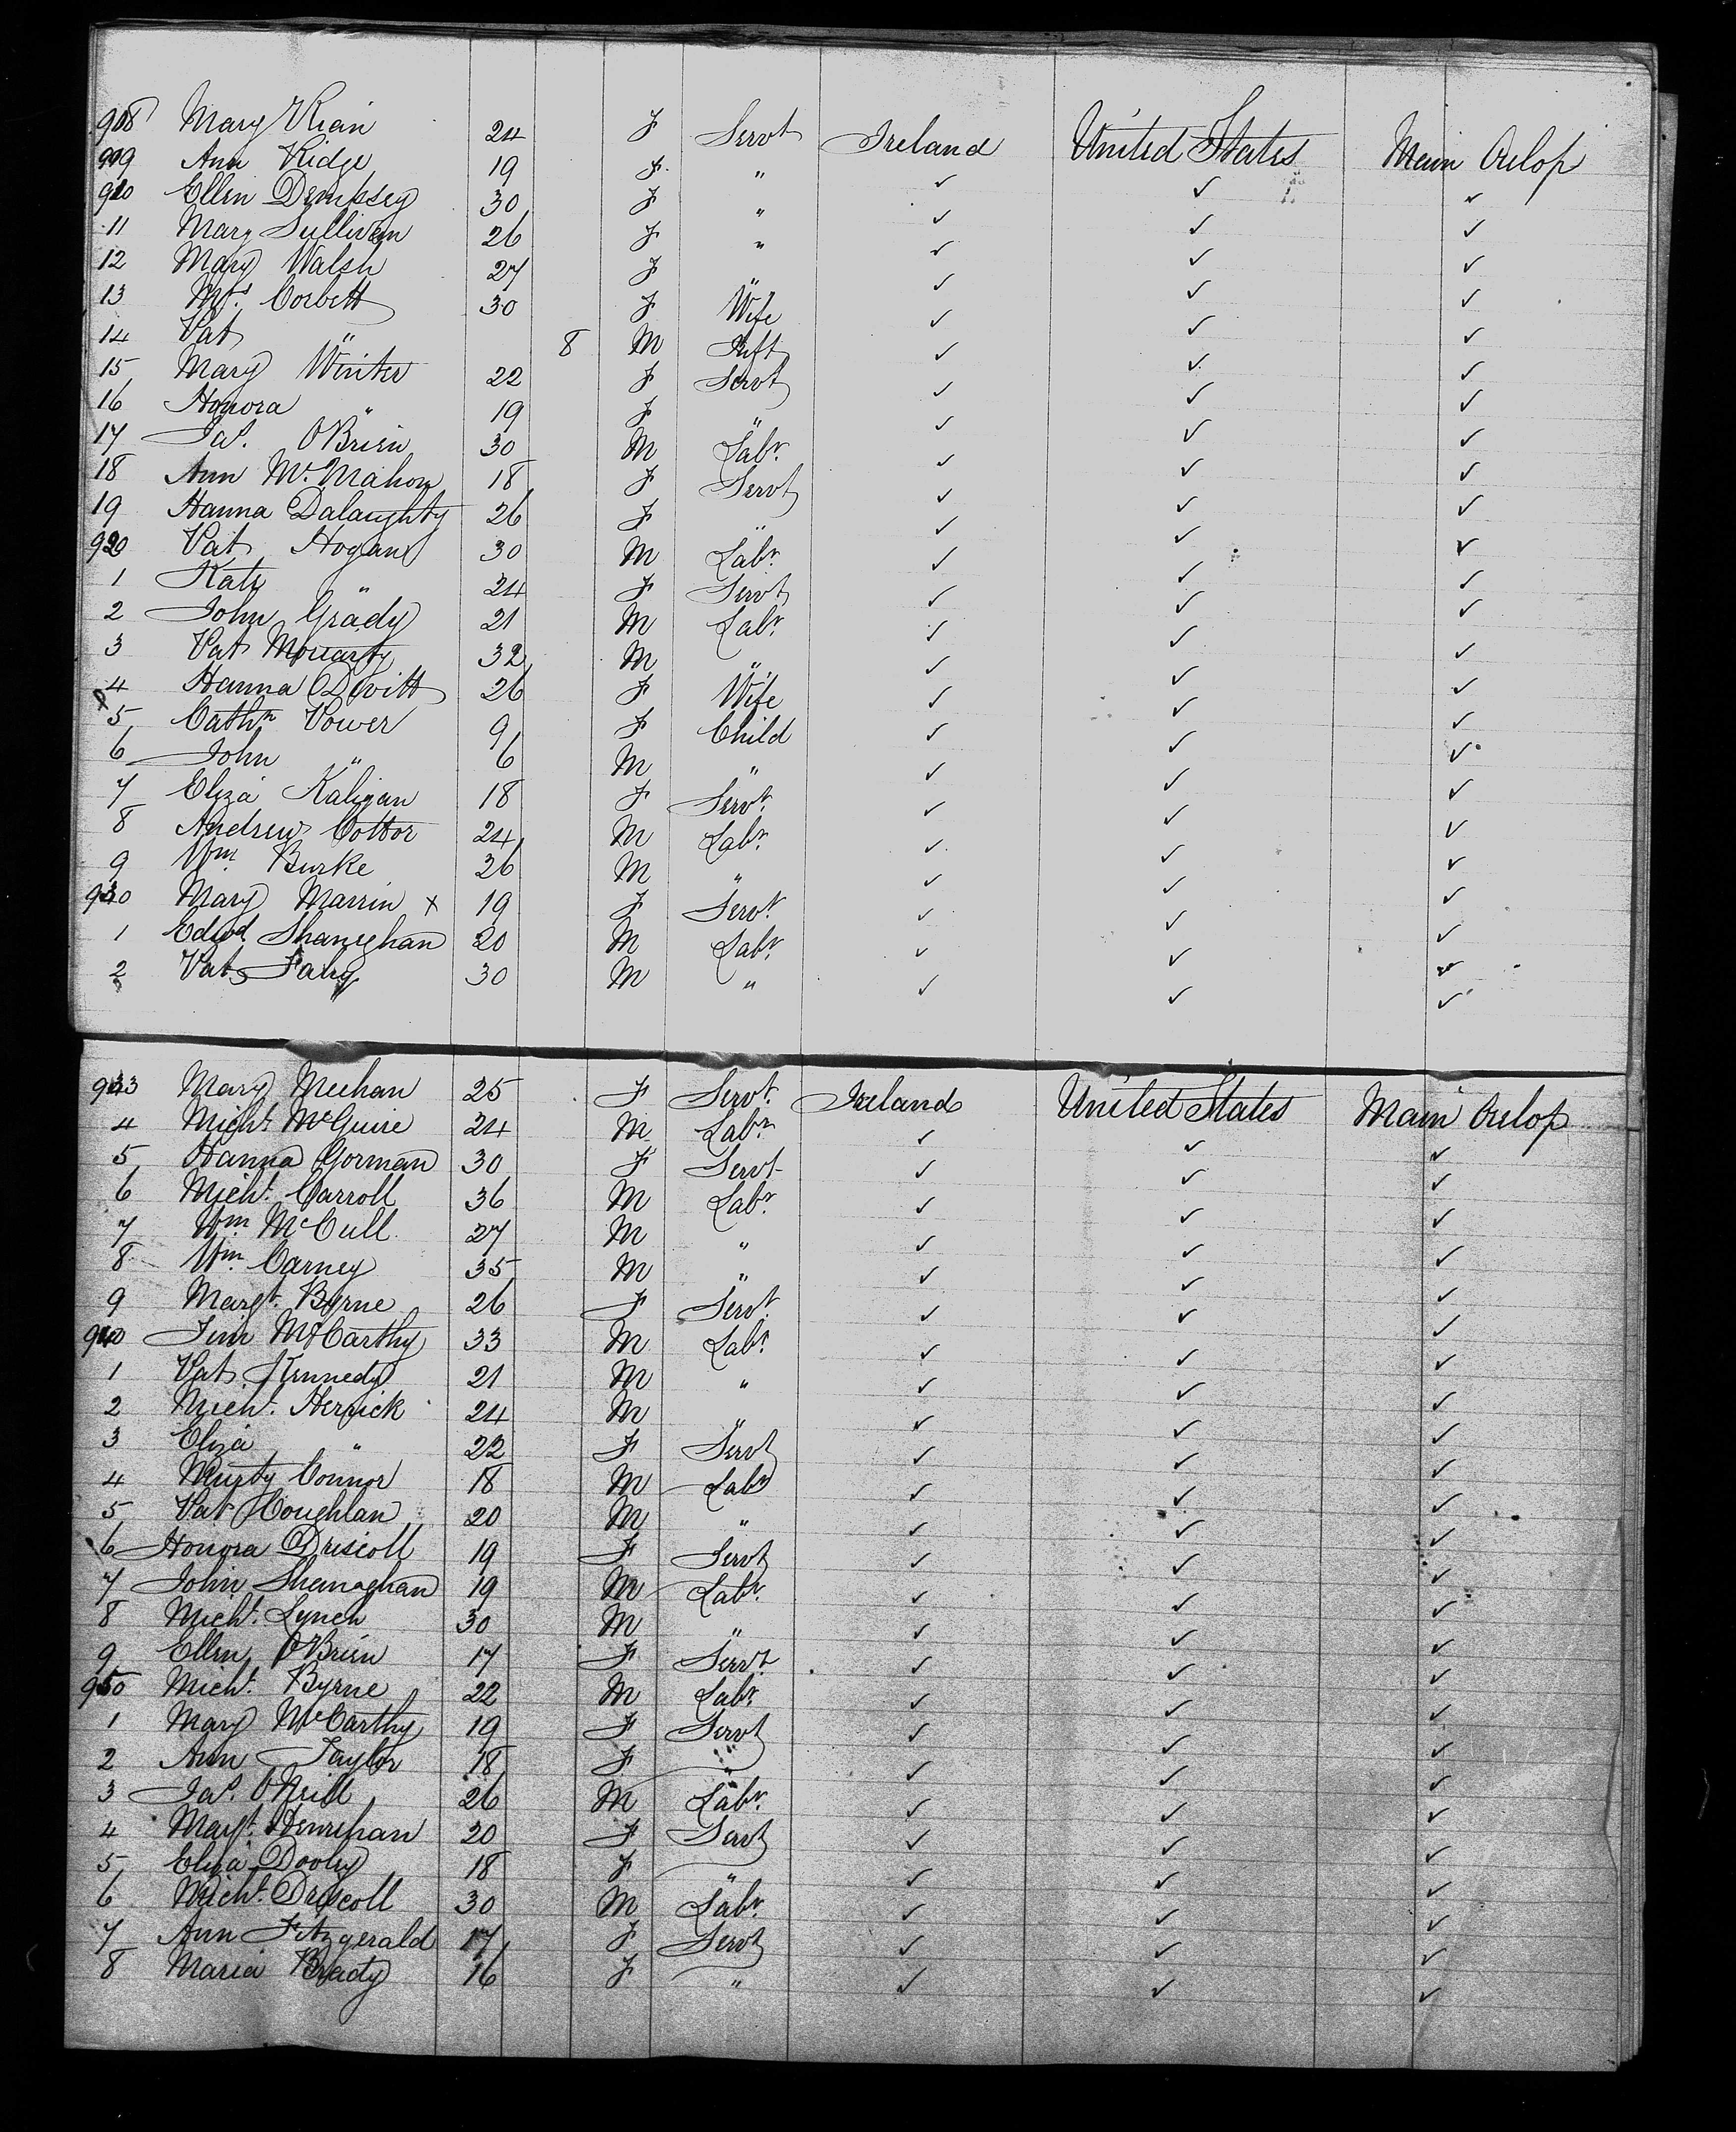 908 Mary Kian 24 F Servt Ireland United States Main Orlop
909 Ann Ridge 19 F " ✓ ✓ ✓
910 Ellen Dempsey 30 F " ✓ ✓ ✓
11 Mary Sullivan 26 F " ✓ ✓ ✓
12 Mary Walsh 27 F " ✓ ✓ ✓
13 Mrs. Corbett 30 F Wife ✓ ✓ ✓
14 Pat " 8 M Inft ✓ ✓ ✓
15 Mary Winter 22 F Servt ✓ ✓ ✓
16 Honora " 19 F " ✓ ✓ ✓
17 Jas. OBrien 30 M Labr. ✓ ✓ ✓
18 Ann McMahon 18 F Servt ✓ ✓ ✓
19 Hanna Dalaughty 26 F " ✓ ✓ ✓
920 Pat Hogan 30 M Labr. ✓ ✓ ✓
1 Kate " 24 F Servt ✓ ✓ ✓
2 John Grady 21 M Labr. ✓ ✓ ✓
3 Pat Moriarty 32 M " ✓ ✓ ✓
4 Hanna Devitt 26 F Wife ✓ ✓ ✓
5 Cathn Power 9 F Child ✓ ✓ ✓
6 John " 6 M " ✓ ✓ ✓
7 Eliza Kaligan 18 F Servt. ✓ ✓ ✓
8 Andrew Cottor 24 M Labr. ✓ ✓ ✓
9 Wm Burke 26 M " ✓ ✓ ✓
930 Mary Marrin x 19 F Servt. ✓ ✓ ✓
1 Edwd Shaneghan 20 M Labr. ✓ ✓ ✓
2 Pat Fahy 30 M " ✓ ✓ ✓
933 Mary Meehan 25 F Servt. Ireland United States Main Orlop
4 Michl. McGuire 24 M Labr. ✓ ✓ ✓
5 Hanna Gorman 30 F Servt ✓ ✓ ✓
6 Michl. Carroll 36 M Labr. ✓ ✓ ✓
7 Wm. McCull 27 M " ✓ ✓ ✓
8 Wm. Carney 35 M " ✓ ✓ ✓
9 Margt. Byrne 26 F Servt. ✓ ✓ ✓
940 Tim McCarthy 33 M Labr. ✓ ✓ ✓
1 Pat Kennedy 21 M " ✓ ✓ ✓
2 Michl. Herrick 24 M " ✓ ✓ ✓
3 Eliza " 22 F Servt ✓ ✓ ✓
4 Murty Connor 18 M Labr ✓ ✓ ✓
5 Pat Coughlan 20 M " ✓ ✓ ✓
6 Honora Driscoll 19 F Servt ✓ ✓ ✓
7 John Shanaghan 19 M Labr. ✓ ✓ ✓
8 Michl. Lynch 30 M " ✓ ✓ ✓
9 Ellen OBrien 17 F Servt ✓ ✓ ✓
950 Michl. Byrne 22 M Labr. ✓ ✓ ✓
1 Mary McCarthy 19 F Servt ✓ ✓ ✓
2 Ann Taylor 18 F " ✓ ✓ ✓
3 Jas. ONeill 26 M Labr. ✓ ✓ ✓
4 Margt. Denrehan 20 F Servt ✓ ✓ ✓
5 Eliza Dooley 18 F " ✓ ✓ ✓
6 Michl. Driscoll 30 M Labr. ✓ ✓ ✓
7 Ann Fitzgerald 17 F Servt ✓ ✓ ✓
8 Maria Brady 16 F " ✓ ✓ ✓